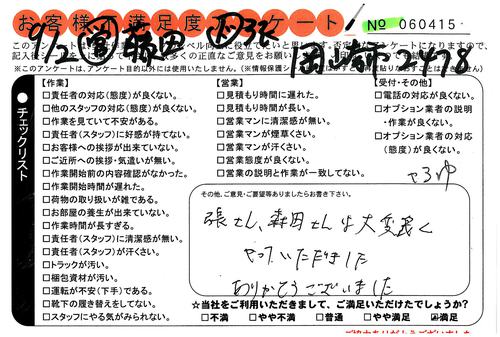 お客様満足度アンケート!
No 060415
9/2 藤田 張
岡崎市 2478
※このアンケートは、アンケート目的以外には使用いたしません。
チェックリスト
【作業】
□責任者の対応(態度)が良くない。
□他のスタッフの対応(態度)が良くない。
□作業を見ていて不安がある。
□責任者(スタッフ)に好感が持てない。
□お客様への挨拶が出来ていない。
□ご近所への挨拶・気遣いが無い。
□作業開始前の内容確認がなかった。
□作業開始時間が遅れた。
□荷物の取り扱いが雑である。
□お部屋の養生が出来ていない。
□作業時間が長すぎる。
□責任者(スタッフ)に清潔感が無い。
□責任者(スタッフ)が汗くさい。
□トラックが汚い。
□梱包資材が汚い。
□運転が不安(下手)である。
□靴下の履き替えをしてない。
□スタッフにやる気がみられない。
【営業】
□見積もり時間に遅れた。
□見積もり時間が長い。
□営業マンに清潔感が無い。
□営業マンが煙草くさい。
□営業マンが汗くさい。
□営業態度が良くない。
□営業の説明と作業が一致してない。
【受付・その他】
□電話の対応が良くない。
□オプション業者の説明
・作業が良くない。
□オプション業者の対応
(態度)が良くない。
その他、ご意見・ご要望等ありましたらお書き下さい。
張さん、森田さんは大変よく
やっていただきました
ありがとうございました
☆当社をご利用いただきまして、ご満足いただけたでしょうか?
□不満 □やや不満 □普通 □やや満足 ☑満足
ご協力ありがとうございました